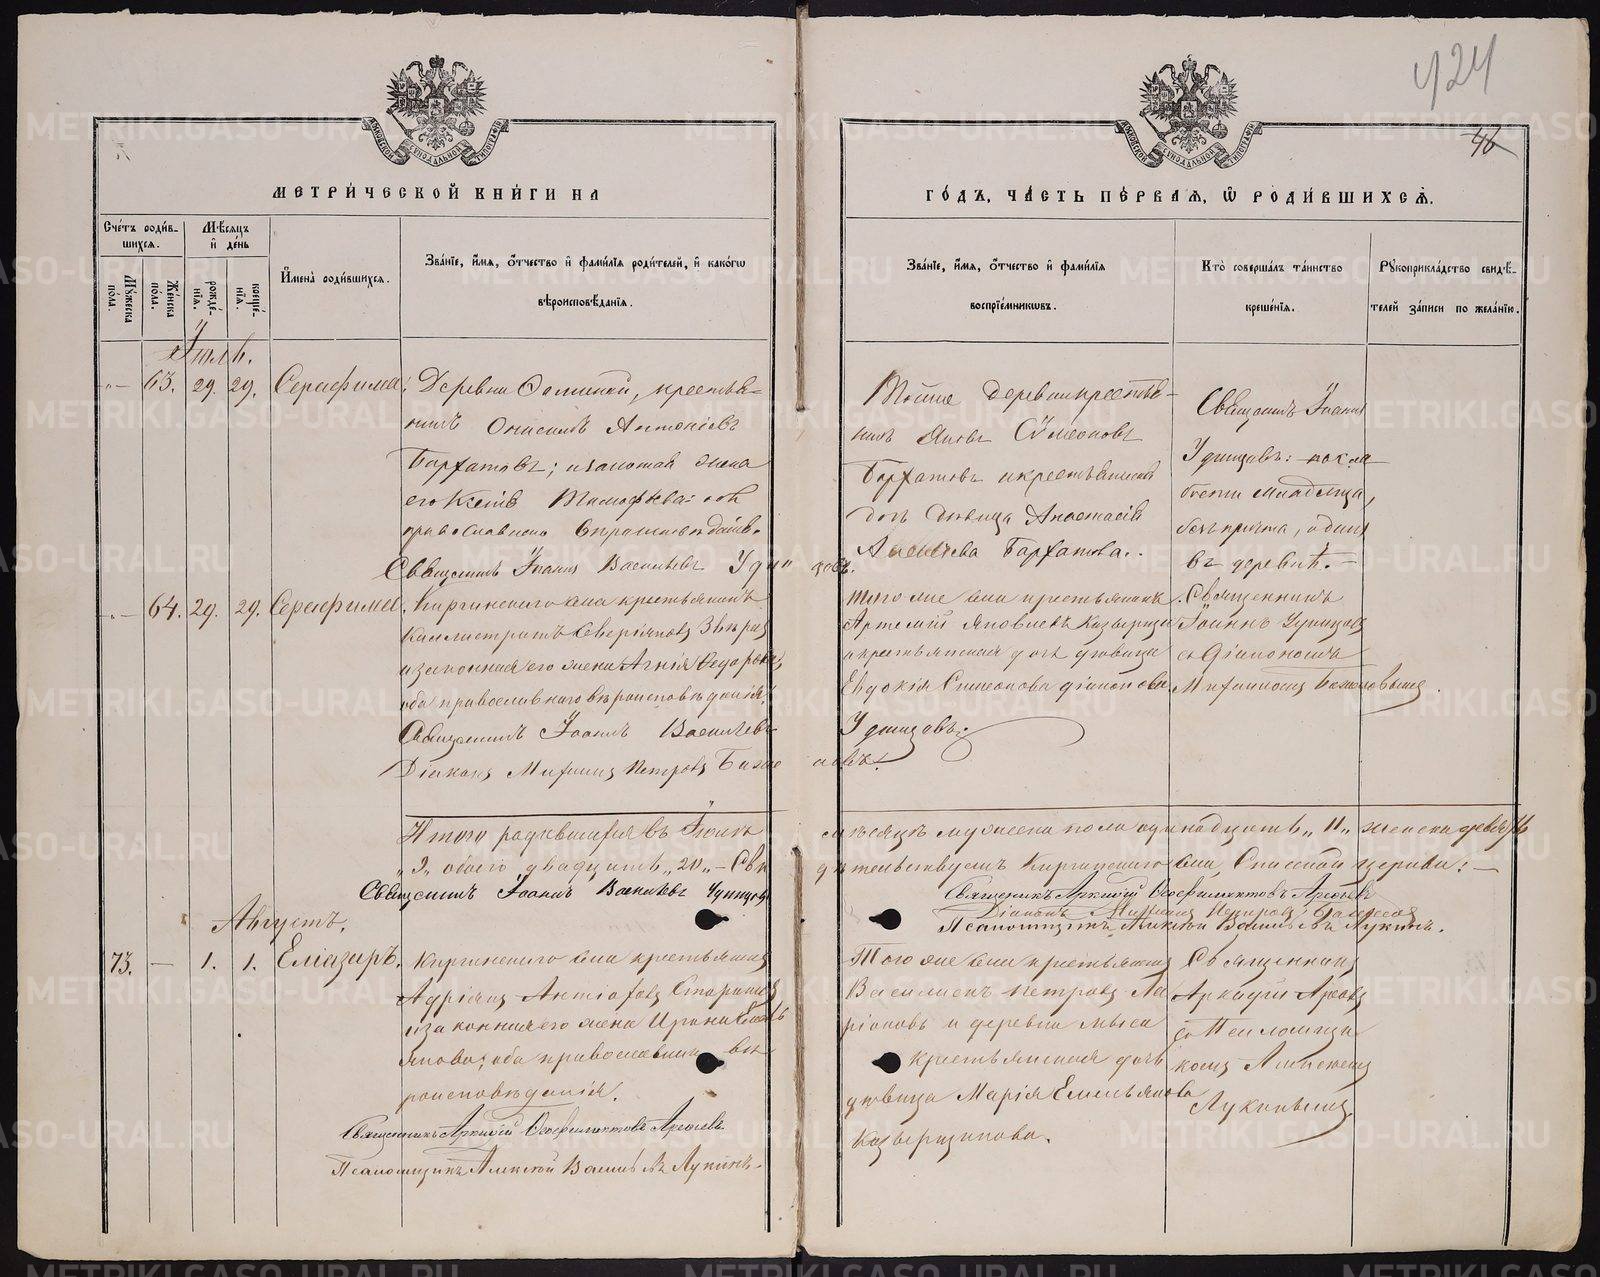 424
46
МЕТРИ́ЧЕСКОЙ КНИ́ГИ НА
ГО́ДЪ, ЧА́СТЬ ПЕ́РВАЯ, Ѡ РОДИ́ВШИХСѦ.
Сче́тъ роди́в-
шихся.
Мѣ́сяцъ
и де́нь
Му́жеска по́ла.
Же́нска по́ла.
рожде́-
нїя.
креще́-
нїя.
И҆мена̀ роди́вшихся.
Зва́нїе, и҆́мя, ѻ҆́тчество и҆ фами́лїѧ роди́телей, и҆ како́гѡ
вѣроисповѣ́данїя.
Зва́нїе, и҆́мя, ѻ҆́тчество и҆ фами́лїя
воспрїе́мникѡвъ.
Кто̀ соверша́лъ та́инство
креще́нїя.
Рꙋкоприкла́дство свидѣ́-
телей за́писи по жела́нїю.
Іюль.
63. 29. 29. Серафима
Деревни крестья-
нинъ Онисимъ Антоніевъ
Бархатовъ; и законная жена
его Ксенія Тимофеева: оба
православнаго вѣроисповѣданія.
Священникъ Іоаннъ Васильевъ Удинцовъ.
Тойже деревни крестья-
нинъ Яковъ Сѵмеоновъ
Бархатовъ и крестьянская
дочь дѣвица Анастасія
Бархатова.
Священникъ Іоаннъ
Удинцовъ: по сла-
бости младенца,
безъ причта, одинъ
въ деревнѣ.
64. 29. 29. Серафима.
Киргинскаго села крестьянинъ
Каллистратъ Северіяновъ
и законная его жена Агнія Федорова,
оба православнаго вѣроисповѣданія.
Священникъ Іоаннъ Васильевъ Удинцовъ.
Діаконъ Михаилъ Петровъ
того же села крестьянинъ
Артемій Яковлевъ
и крестьянская дочь дѣвица
Евдокія Симеонова
Священникъ
Іоаннъ Удинцовъ
съ Діакономъ
Михаиломъ
Итого родившихся въ Іюлѣ мѣсяцѣ мужеска пола одинадцать „11„ женска девять
„9„ обоего двадцать „20„ – Свидѣтельствуемъ Киргинскаго села, Спасской церкви: –
Священникъ Іоаннъ Васильевъ Удинцовъ
Священникъ Аркадій Ѳеофилактовъ Арефьевъ
Діаконъ Михаилъ Петровъ
Псаломщикъ Алексѣй Васильевъ Лукинъ.
Августъ.
73. – 1. 1. Еліазаръ.
Киргинскаго села крестьянинъ
Адріянъ
и законная его жена Ирина Емель-
янова; оба православнаго вѣ-
роисповѣданія.
Священникъ Аркадій Ѳеофилактовъ Арефьевъ
Псаломщикъ Алексѣй Васильевъ Лукинъ.
Того же села крестьянинъ
Василискъ Петровъ Ла-
ріоновъ и деревни Мыса
крестьянская дочь
дѣвица Марія Емельянова
Священникъ
Аркадій
съ Псаломщи-
комъ Алексѣемъ
Лукинымъ
METRIKI.GASO-URAL.RU